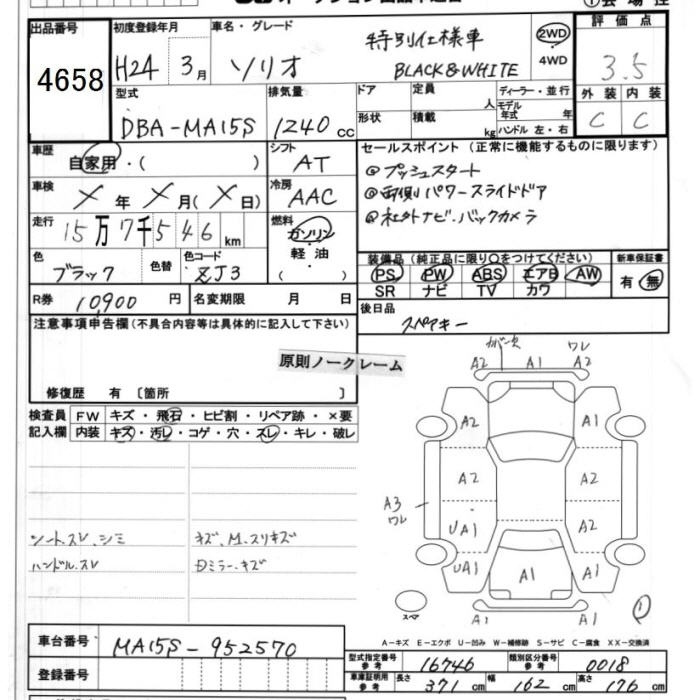 ①会場控
出品番号
4658
初度登録年月
H24 3月
車名・グレード
ソリオ
特別仕様車
BLACK&WHITE
2WD
4WD
評価点
3.5
外装 内装
C C
型式
DBA-MA15S
排気量
1240cc
ドア
形状
定員 人
積載 kg
ディーラー・並行
モデル年式 年
ハンドル 左・右
車歴
自家用・( )
シフト
AT
車検
×年×月(×日)
冷房
AAC
走行
15万7千546km
燃料
ガソリン
軽油
・
( )
色
ブラック
色替
色コード
ZJ3
R券 10,900 円
名変期限 月 日
セールスポイント (正常に機能するものに限ります)
◎プッシュスタート
◎両側パワースライドドア
◎社外ナビ.バックカメラ
装備品 (純正品に限り○をつけてください)
PS PW ABS エアB AW
SR ナビ TV カワ
新車保証書
有・無
後日品
スペアキー
注意事項申告欄(不具合内容等は具体的に記入して下さい)
原則ノークレーム
修復歴 有 〔箇所 〕
検査員記入欄
FW キズ・飛石・ヒビ割・リペア跡・×要
内装 キズ・汚レ・コゲ・穴・スレ・キレ・破レ
シート.スレ.シミ
ハンドル.スレ
キズ.M.スリキズ
Dミラー.キズ
ワレ
A2 A1 A2
A2 A1
A2 A2
A3
ワレ
UA1 A2
UA1 A1 A1
A1 A1
スペア
①
A-キズ E-エクボ U-凹み W-補修跡 S-サビ C-腐食 XX-交換済
車台番号
MA15S-952570
登録番号
型式指定番号 参考
16746
類別区分番号 参考
0018
車庫証明用 参考
長さ 371cm
幅 162cm
高さ 176cm